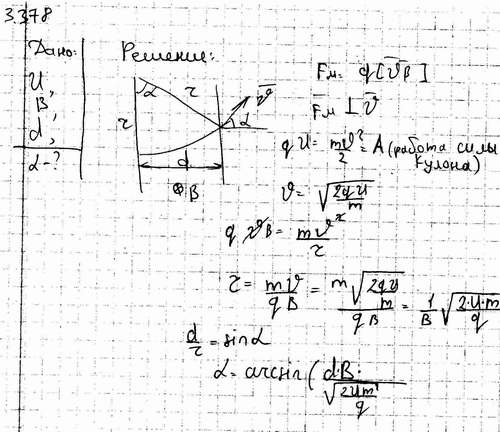 3.378
Дано:
U,
B,
d,
α-?
Решение:
α r
r
v̄
α
d
⊗ B
Fм = q[v̄B]
F̄м ⊥ v̄
qU = mv²/2 = A (работа силы
Кулона)
v = √(2qU/m)
q v B = mv²/r
r = mv/qB = m√(2qU/m)/qB = 1/B √(2·U·m/q)
d/r = sin α
α = arcsin (d·B/√(2Um/q)